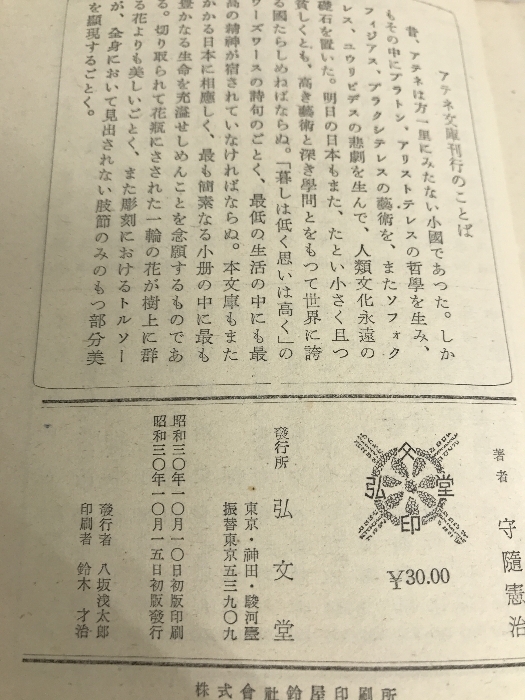 アテネ文庫刊行のことば
昔、アテネは方一里にみたない小國であつた。しか
もその中にプラトン、アリストテレスの哲學を生み、
フィジアス、プラクシテレスの藝術を、またソフォク
レス、ユウリピデスの悲劇を生んで、人類文化永遠の
礎石を置いた。明日の日本もまた、たとい小さく且つ
貧しくとも、高き藝術と深き學問とをもつて世界に誇
る國たらしめねばならぬ。「暮しは低く思いは高く」の
ワーズワースの詩句のごとく、最低の生活の中にも最
高の精神が宿されていなければならぬ。本文庫もまた
かかる日本に相應しく、最も簡素なる小册の中に最も
豊かなる生命を充溢せしめんことを念願するものであ
る。切り取られて花瓶にさされた一輪の花が樹上に群
る花よりも美しいごとく、また彫刻におけるトルソー
が、全身において見出されない肢節のみのもつ部分美
を顯現するごとく。
著者 守隨憲治
弘文堂印
¥30.00
發行所 弘文堂
東京・神田・駿河臺
振替東京五三九〇九
昭和三〇年一〇月一〇日初版印刷
昭和三〇年一〇月一五日初版發行
發行者 八坂浅太郎
印刷者 鈴木才治
株式會社鈴屋印刷所